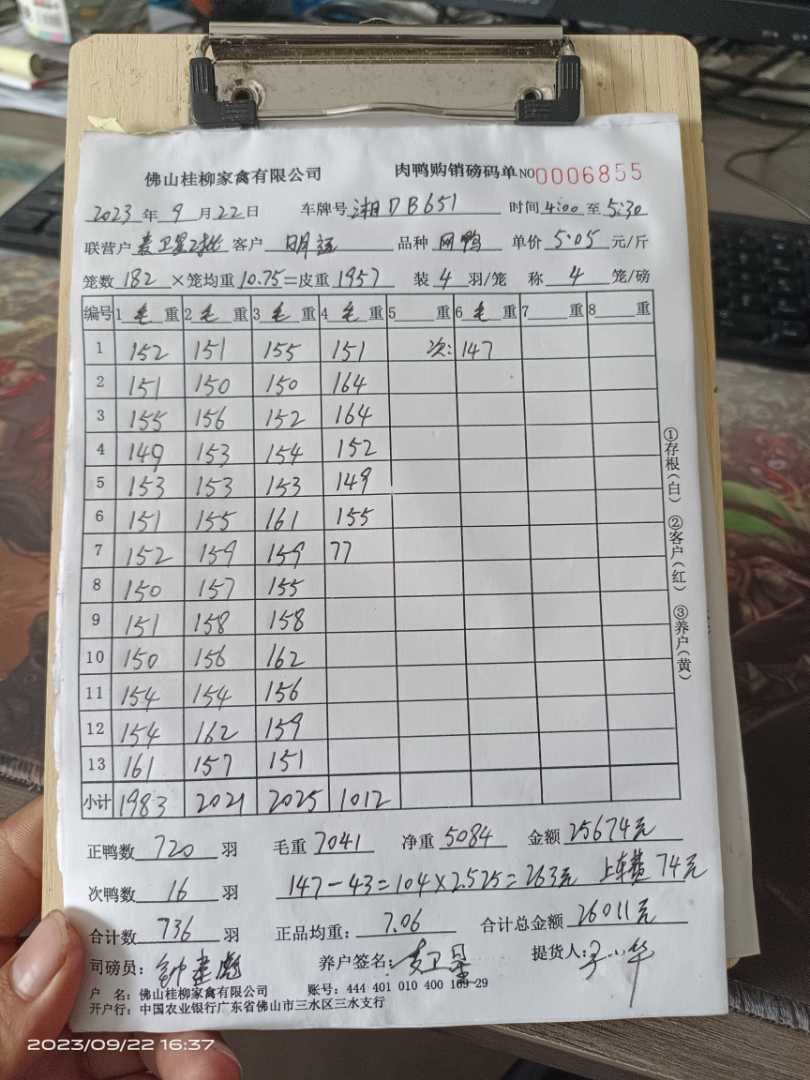 佛山桂柳家禽有限公司 肉鸭购销磅码单 NO 0006855
2023 年 9 月 22 日 车牌号 湘DB651 时间 4:00 至 5:30
联营户 麦卫星2批 客户 明远 品种 网鸭 单价 5.05 元/斤
笼数 182 ×笼均重 10.75 =皮重 1957 装 4 羽/笼 称 4 笼/磅
编号 1 毛 重 2 毛 重 3 毛 重 4 毛 重 5 重 6 毛 重 7 重 8 重
1 152 151 155 151 次: 147
2 151 150 150 164
3 155 156 152 164
4 149 153 154 152
5 153 153 153 149
6 151 155 161 155
7 152 159 159 77
8 150 157 155
9 151 158 158
10 150 156 162
11 154 154 156
12 154 162 159
13 161 157 151
小计 1983 2021 2025 1012
①存根(白) ②客户(红) ③养户(黄)
正鸭数 720 羽 毛重 7041 净重 5084 金额 25674元
次鸭数 16 羽 147-43=104×2.525=263元 上车费 74元
合计数 736 羽 正品均重: 7.06 合计总金额 26011元
司磅员: 钟建彪 养户签名: 麦卫星 提货人:
户 名: 佛山桂柳家禽有限公司 账号: 444 401 010 400 169 29
开户行: 中国农业银行广东省佛山市三水区三水支行
2023/09/22 16:37